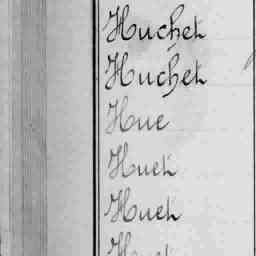 Huchet
Huchet
Hue
Huet
Huet